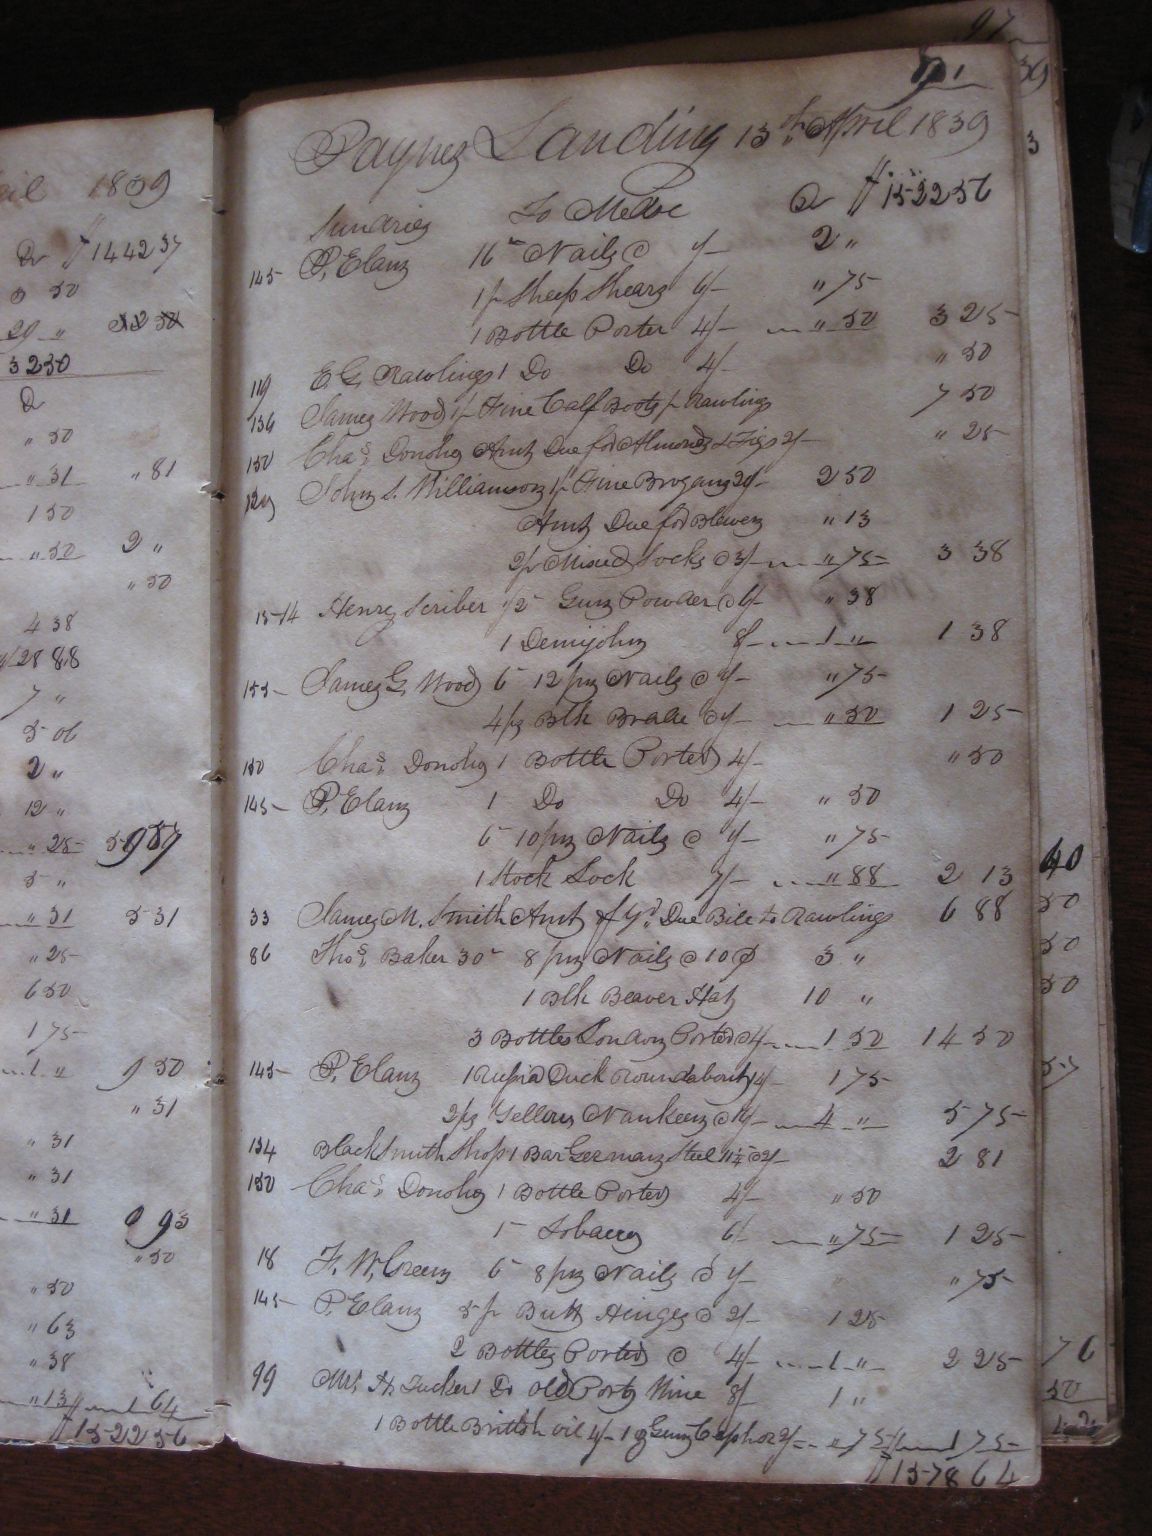 ail 1839
Dr $1442 37
3250
Dr
" 50
" 31 " 81
1 50
" 50 2 "
" 50
4 38
28 88
7 "
5 06
2 "
12 "
" 25
5 "
" 31 5 31
" 25
6 50
1 75
1 " 9 50
" 31
" 31
" 31
" 31 " 93
" 50
" 50
" 63
" 38
" 13 1 64
$1522 56
91
Paynes Landing 13th April 1839
Sundries To Mdse Dr $1522 56
145 P. Elam 16 Nails @ 1/- 2 "
1 pr Sheep Shears 6/- " 75
1 Bottle Porter 4/- " 50 3 25
119 E. G. Rawlings 1 Do Do 4/- " 50
136 James Wood 1 pr Fine Calf Boots pr Rawlings 7 50
150 Chas. Donohy Amt Due for Almonds & Figs 2/- " 25
129 John S. Williamson 1 pr Fine Brogans 20/- 2 50
Amt Due for " 13
2 pr Mixed Socks @ 3/- " 75 3 38
15-14 Henry Scriber 1/2 Gun Powder @ 6/- " 38
1 Demijohn 8/- 1 " 1 38
155 James G. Wood 6 12 pny Nails @ 1/- " 75
4 ps Blk Braid @ 1/- " 50 1 25
150 Chas. Donohy 1 Bottle Porter 4/- " 50
145 P. Elam 1 Do Do 4/- " 50
6 10 pny Nails @ 1/- " 75
1 Stock Lock 7/- " 88 2 13
33 James M. Smith Amt of Yr. Due Bill to Rawlings 6 88
86 Thos. Baker 30 8 pny Nails @ 10¢ 3 "
1 Blk Beaver Hat 10 "
3 Bottles London Porter @ 4/- 1 50 14 50
145 P. Elam 1 Rusia Duck Roundabout 14/- 1 75
2 ps Yellow Nankeen @ 16/- 4 " 5 75
134 BlackSmith Shop 1 Bar German Steel 11 1/4 @ 2/- 2 81
150 Chas. Donohy 1 Bottle Porter 4/- " 50
1 Tobacco 6/- " 75 1 25
18 F. W. Green 6 8 pny Nails @ 1/- " 75
145 P. Elam 5 pr Butt Hinges @ 2/- 1 25
2 Bottles Porter @ 4/- 1 " 2 25
99 Mrs H. Tucker 1 Do Old Port Wine 8/- 1 "
1 Bottle British oil 4/- 1 oz Gum Camphor 2/- " 75 1 75
$1578 64
97
39
3
40
50
50
50
76
50